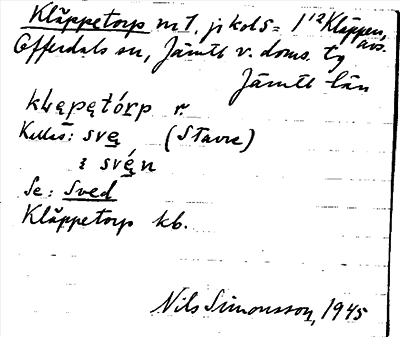 Kläppetorp nr 1, jr kol 5 = 1/12 Kläppen, avs.
Offerdals sn, Jämtl v. doms. tg
Jämtl län
klępętórp r.
Kallas: svę (Stavre)
i svę́n
Se: Sved
Kläppetorp kb.
Nils Simonsson, 1945